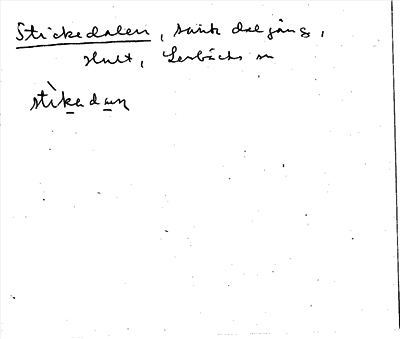 Stickedalen, sänk dalgång,
Hult, Lerbäcks sn
stìkedaɳ